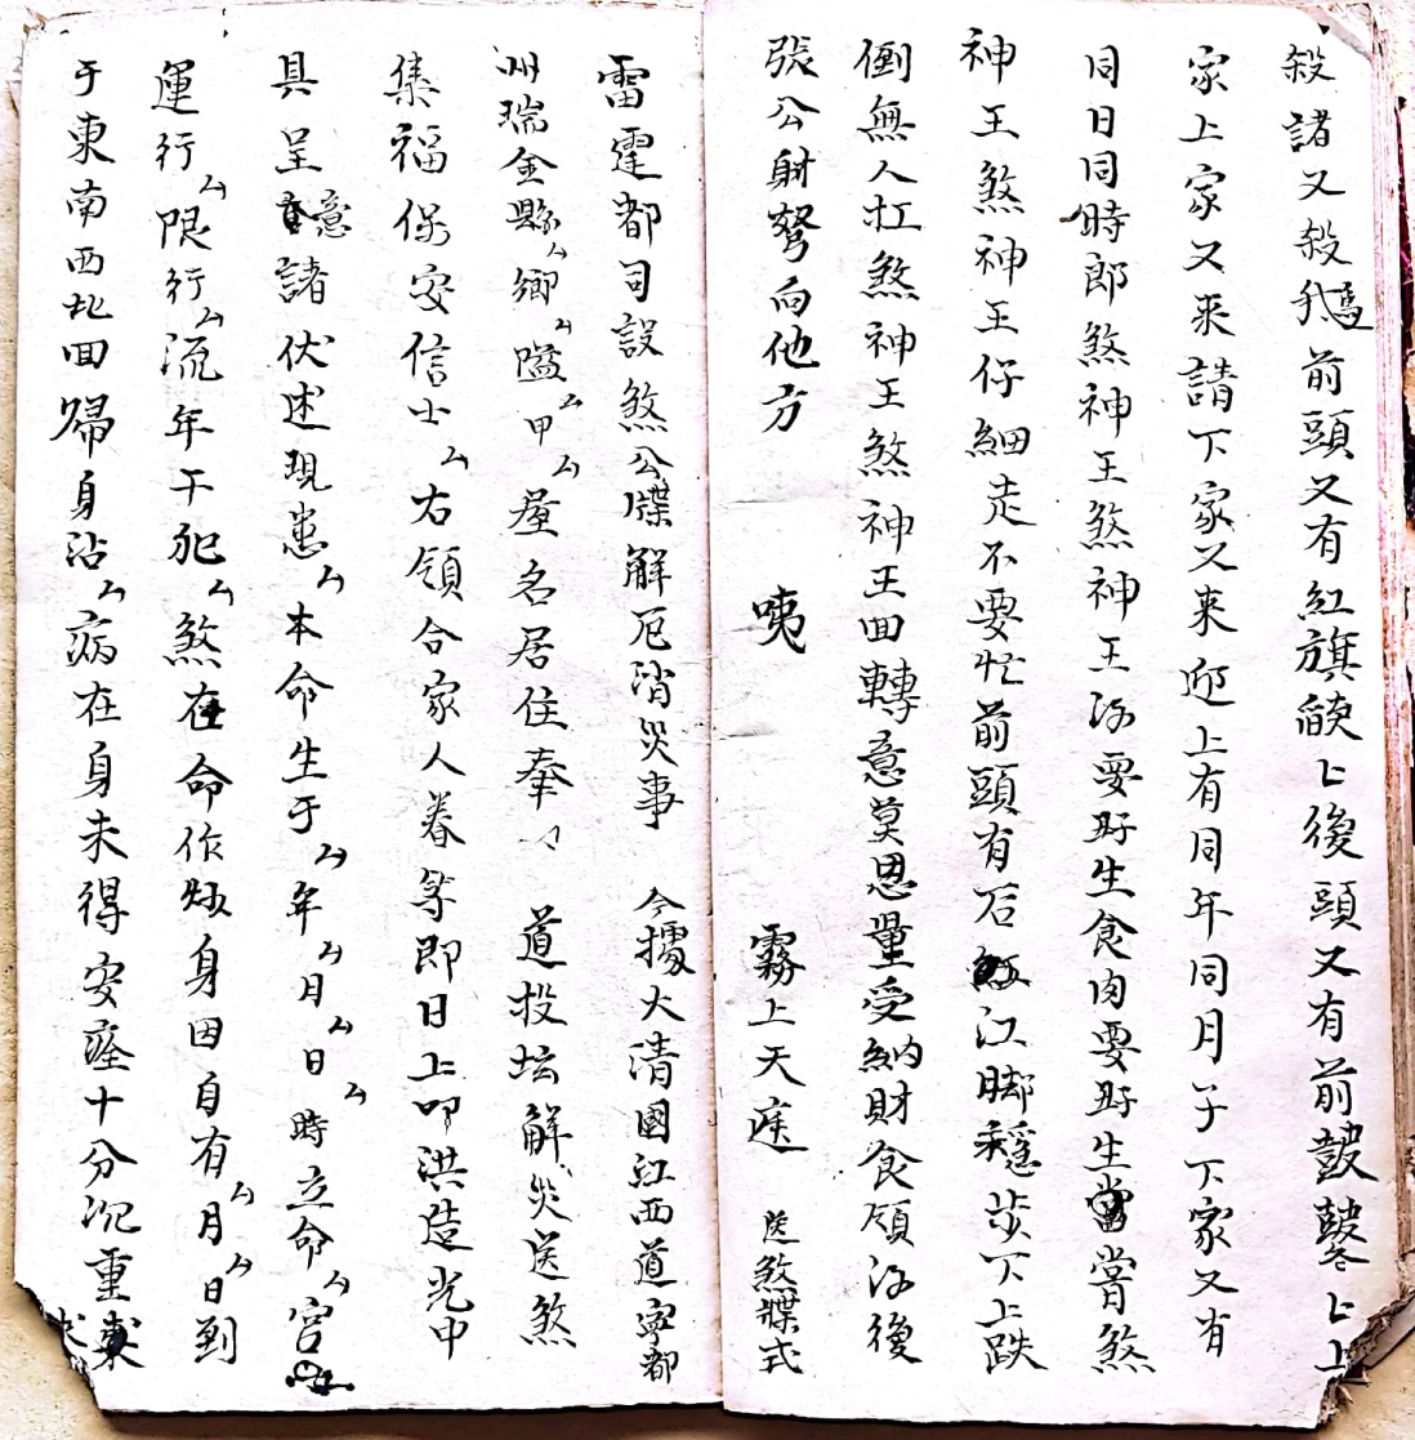 殺諸又殺我馬前頭又有紅旗皷匕後頭又有前皷鼕匕上
家上家又来請下家又来迎上有同年同月子下家又有
同日同時郎煞神王煞神王汝要好生食肉要好生當嘗煞
神王煞神王仔細走不要忙前頭有石江脚穩步下上跌
倒無人扛煞神王煞神王回轉意莫恩量受納財食領汝後
張公射弩向他方　咦　霧上天庭　送煞牒式
雷霆都司設煞公牒解厄消災事　今據大清國江西道寧都
州瑞金縣厶鄉厶隘厶甲厶屋名居住奉　道投坛解災送煞
集福保安信士厶右領合家人眷等即日上叩洪造光中
具呈意諸伏述現患厶本命生于厶年厶月厶日厶時立命厶宮
運行厶限行厶流年干犯厶煞在命作□身因自有厶月厶日到
于東南西北回歸身沾厶病在身未得安痊十分沉重